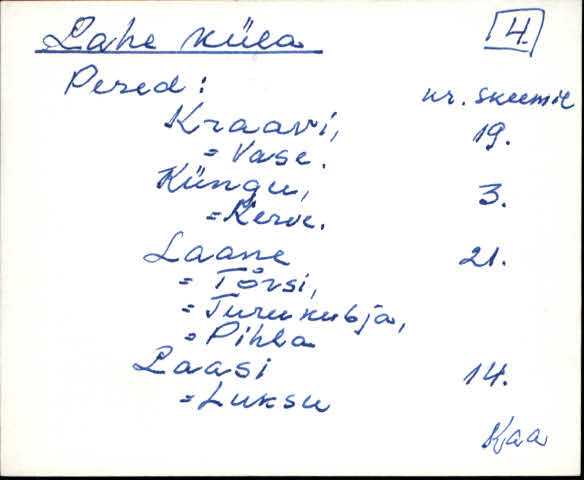 Lahe küla 4.
Pered: nr. skeemil
Kraavi, 19.
= Vase.
Küngu, 3.
= Kerve.
Laane 21.
= Tõvsi,
= Turu kubja,
= Pihla
Laasi 14.
= Luksu
Kjaa